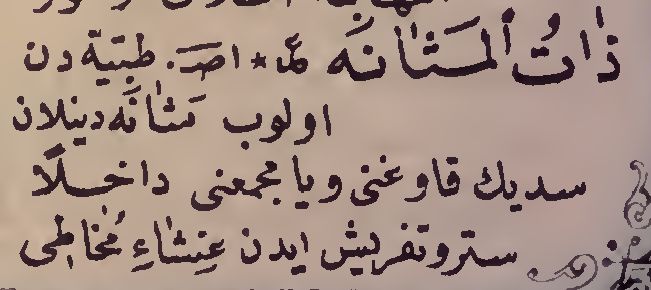 ذٰاتُ الْمَثٰانَه * اصـ. طبيّه دن
اولوب مَثٰانَه دينلان
سديك قاوغنى ويا مجمعنى داخـلاً
ستر و تفريش ايدن غِشٰاءِ مُخٰاطى